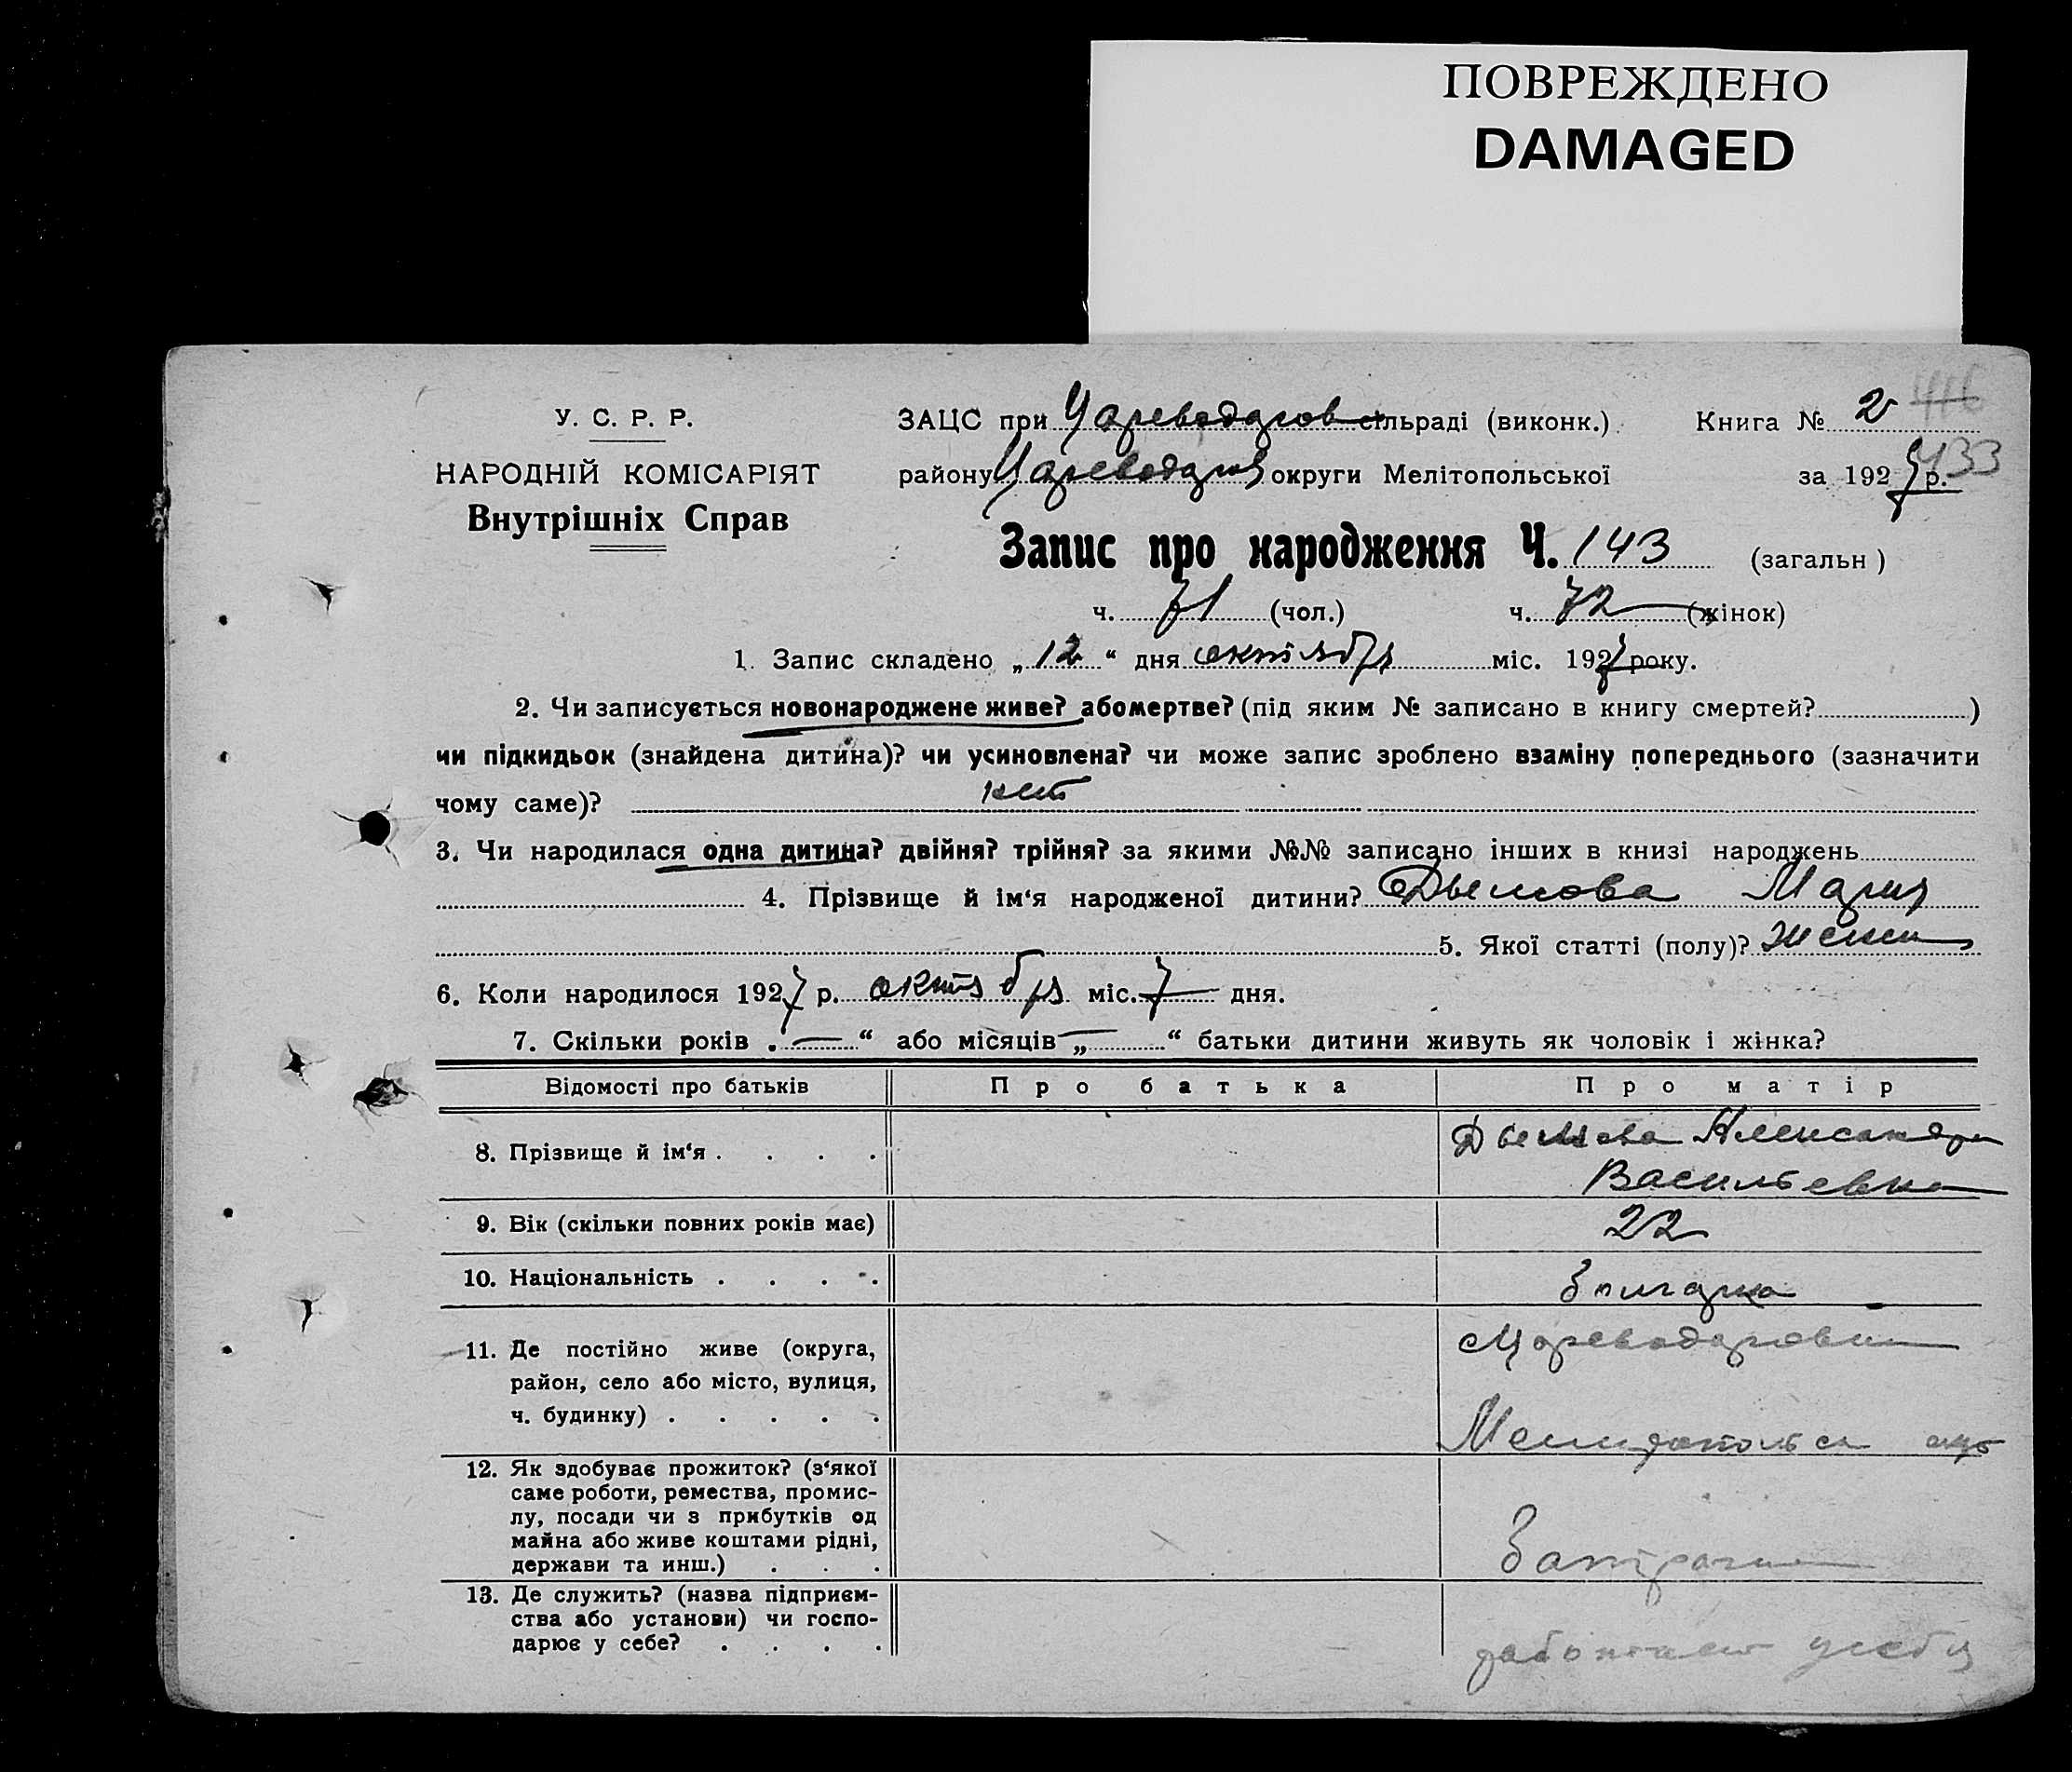 ПОВРЕЖДЕНО
DAMAGED
У. С. Р. Р.
НАРОДНІЙ КОМІСАРІЯТ
Внутрішніх Справ
ЗАЦС при Цареводаров сільраді (виконк.). Книга № 2 416
району Цареводаров округи Мелітопольської за 1927 р. 433
Запис про народження Ч. 143 (загальн)
ч. 71 (чол.) ч. 72 (жінок)
1. Запис складено „12“ дня октября міс. 1927 року.
2. Чи записується новонароджене живе? або мертве? (під яким № записано в книгу смертей? )
чи підкидьок (знайдена дитина)? чи усиновлена? чи може запис зроблено взаміну попереднього (зазначити
чому саме)? нет
3. Чи народилася одна дитина? двійня? трійня? за якими №№ записано інших в книзі народжень
4. Прізвище й ім‘я народженої дитини? Дымова Мария
5. Якої статті (полу)? женск
6. Коли народилося 1927 р. октября міс. 7 дня.
7. Скільки років „—“ або місяців „—“ батьки дитини живуть як чоловік і жінка?
Відомості про батьків Про батька Про матір
8. Прізвище й ім‘я . . . . Дымова Александра
Васильевна
9. Вік (скільки повних років має) 22
10. Національність . . . . болгарка
11. Де постійно живе (округа,
район, село або місто, вулиця,
ч. будинку) . . . . .
Цареводаровка
Мелитопольск окр
12. Як здобуває прожиток? (з‘якої
саме роботи, ремества, промис-
лу, посади чи з прибутків од
майна або живе коштами рідні,
держави та инш.) . . .
Батрачка
13. Де служить? (назва підприєм-
ства або установи) чи госпо-
дарює у себе? . . . .
работает у себя